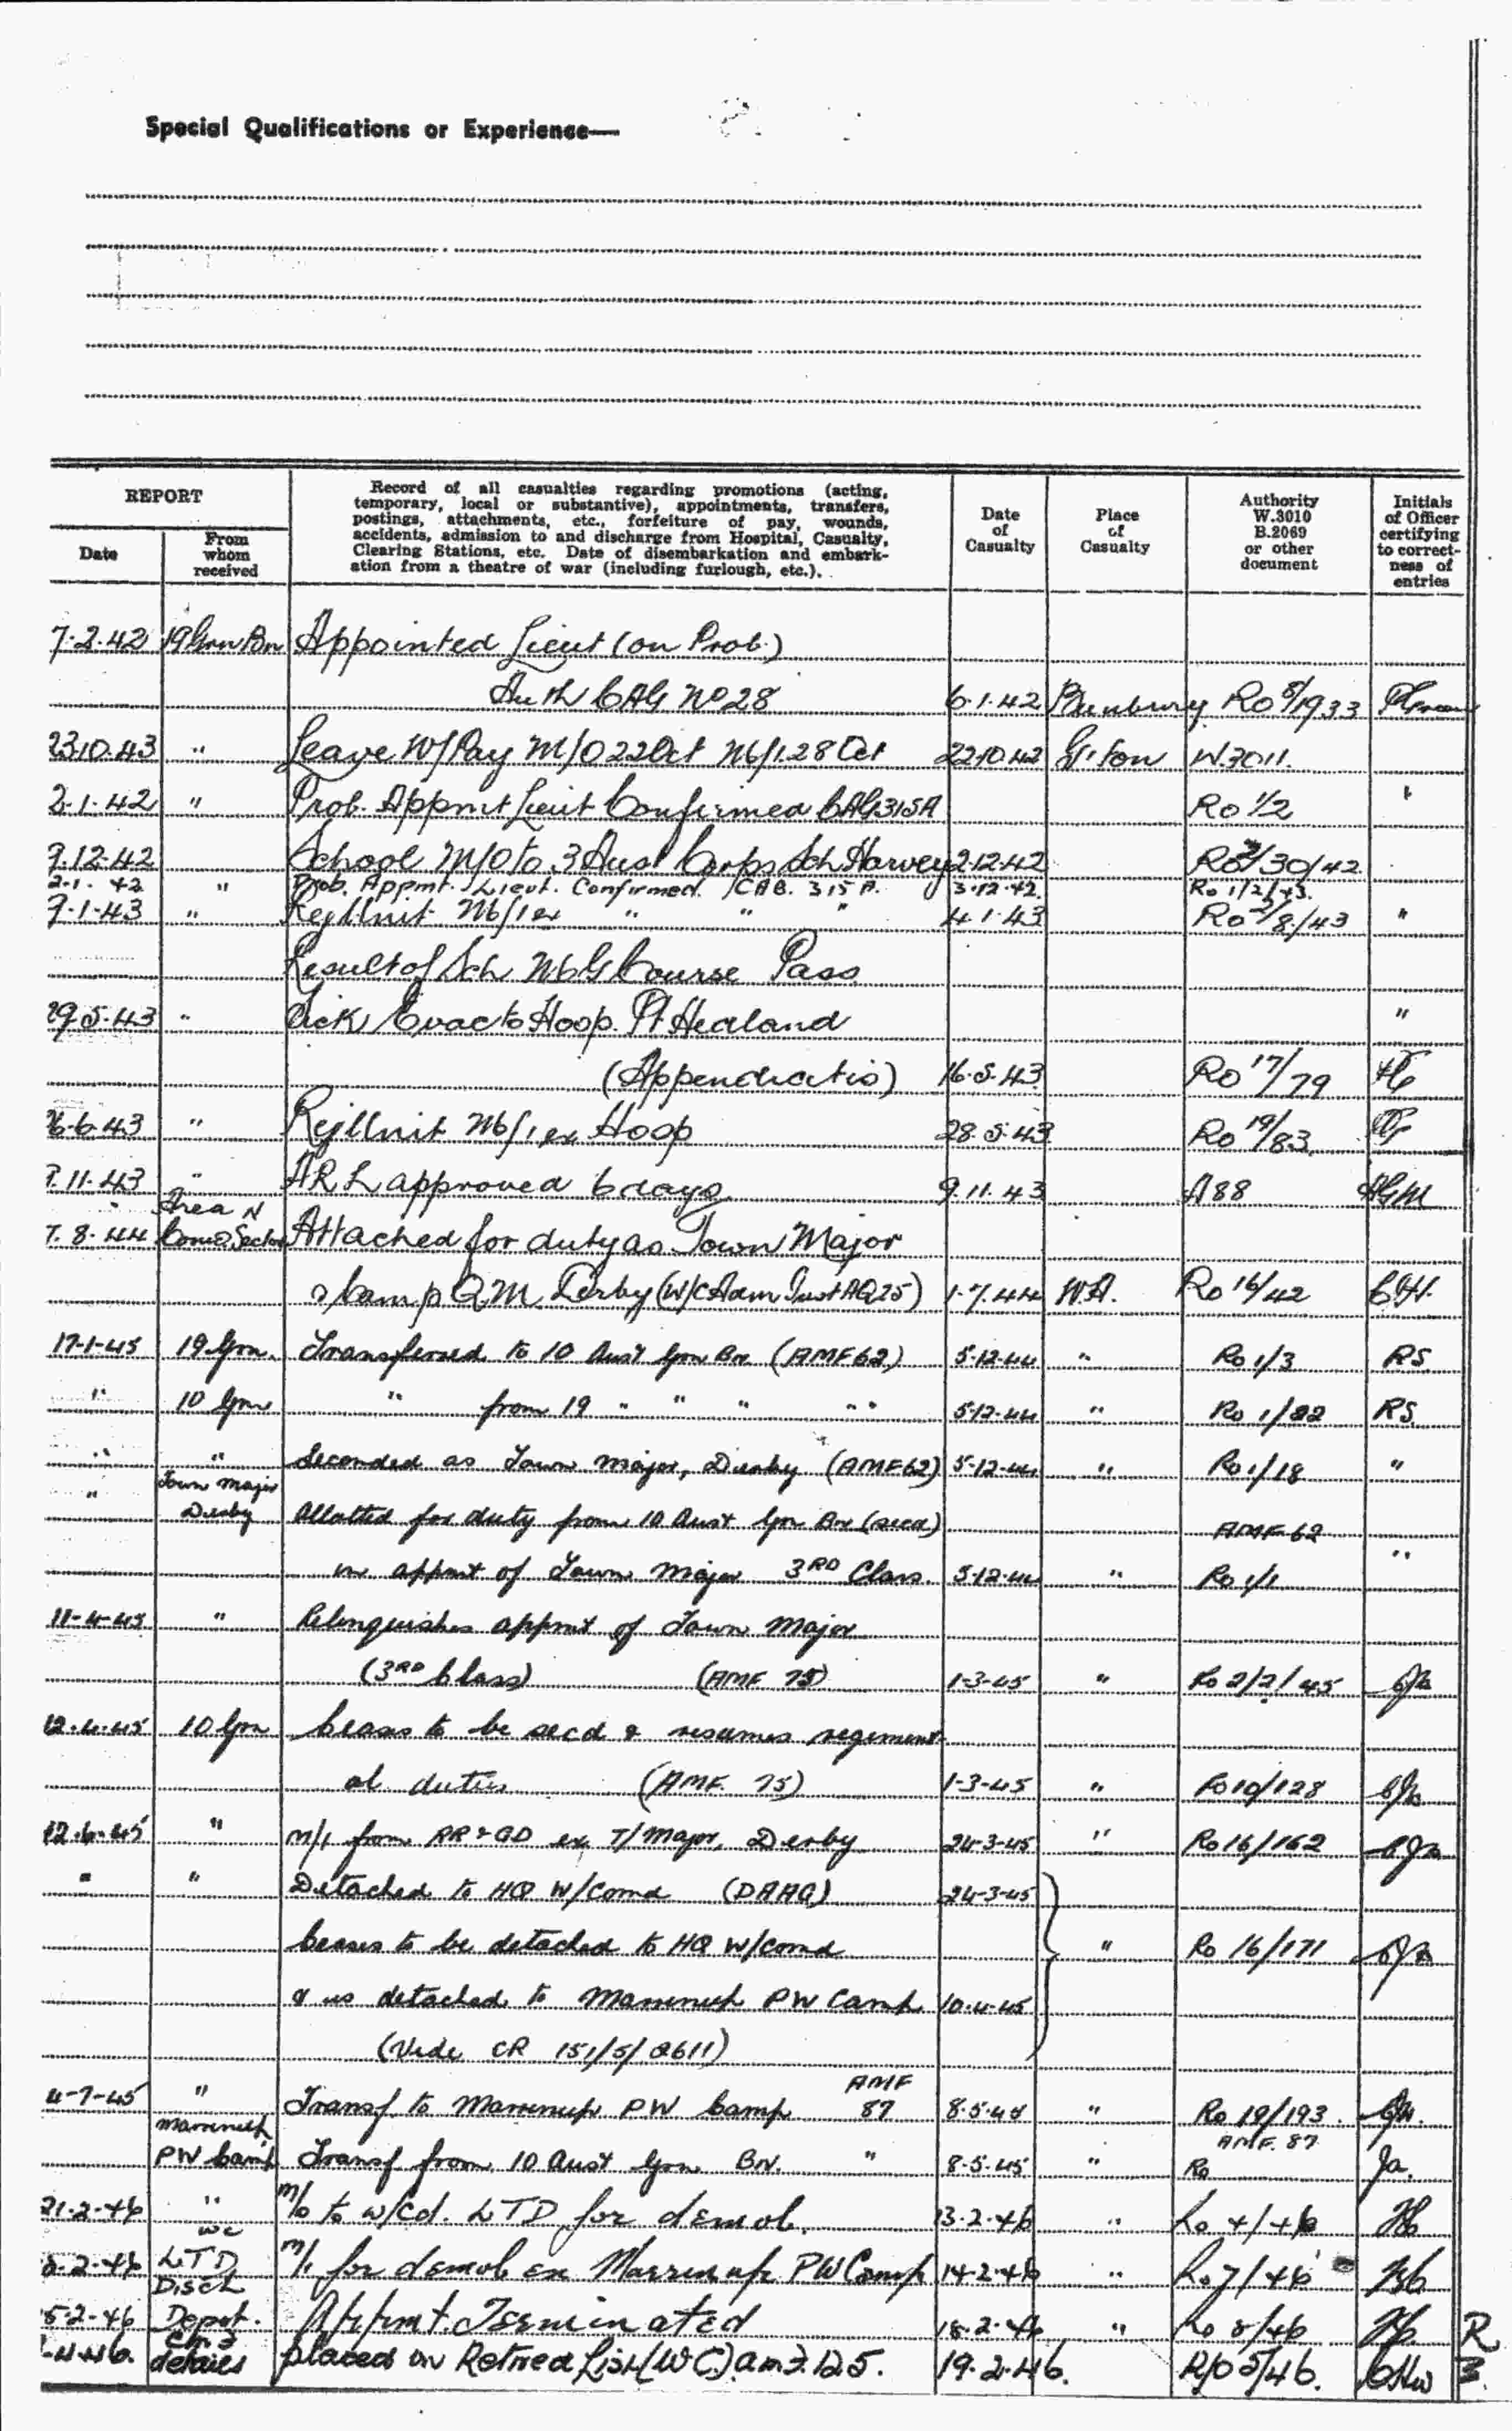 Special Qualifications or Experience—
REPORT
Date
From whom received
Record of all casualties regarding promotions (acting,
temporary, local or substantive), appointments, transfers,
postings, attachments, etc., forfeiture of pay, wounds,
accidents, admission to and discharge from Hospital, Casualty,
Clearing Stations, etc. Date of disembarkation and embark-
ation from a theatre of war (including furlough, etc.).
Date of Casualty
Place of Casualty
Authority W.3010 B.2069 or other document
Initials of Officer certifying to correct-ness of entries
7.2.42 19 Grn Bn Appointed Lieut (on Prob.)
Auth CAG No 28 6.1.42 Bunbury Ro 8/1933
23.10.43 " Leave W/Pay M/O 22 Oct M/I 28 Oct 22.10.42 W.3011.
2.1.42 " Prob. Appmt Lieut Confirmed CAG 315A Ro 1/2
9.12.42 School M/O to 3 Aust Corps Sch Harvey 2.12.42 /30/42
2.1.42 " Prob. Appmt. Lieut. Confirmed. CAB. 315 A. 3.12.42. Ro 1/2/43.
9.1.43 " Rej Unit M/I ex " " " 4.1.43 /8/43 "
Result of Sch Course Pass
29.5.43 " Sick Evac to Hosp. Pt Hedland "
(Appendicitis) 16.5.43 Ro 17/79
6.6.43 " Rej Unit M/I ex Hosp 28.5.43 Ro 19/83
9.11.43 " ARL approved 6 days 9.11.43 A88 HGM
Area N
7.8.44 Comd Sector Attached for duty as Town Major
& Camp QM. Derby (W/C Adm Inst AQ25) 1.7.44 W.A. Ro 16/42
17-1-45 19 Grn. Transferred to 10 Aust Grn Bn (AMF 62) 5-12-44 " Ro 1/3 RS
" 10 Grn " from 19 " " " " 5-12-44 " Ro 1/22 RS
" " Seconded as Town Major, Derby (AMF 62) 5-12-44 " Ro 1/18 "
" Town Major
Derby Allotted for duty from 10 Aust Grn Bn (secd) AMF 62
in appmt of Town Major 3RD Class 5-12-44 " Ro 1/1 "
11-4-45 " Relinquishes appmt of Town Major
(3RD Class) (AMF 75) 1-3-45 " Ro 2/2/45
12.4.45 10 Grn Ceases to be secd & resumes regiment-
al duties (AMF. 75) 1-3-45 " Ro 10/128
12.6.45 " M/I from RR&GD ex T/Major, Derby 24-3-45 " Ro 16/162
" " Detached to HQ W/Comd (DAAG) 24-3-45
Ceases to be detached to HQ W/Comd " Ro 16/171
& is detached to Marrinup PW Camp 10-4-45
(Vide CR 151/5/2611)
4-7-45 " Transf. to Marrinup PW Camp AMF 87 8.5.45 " Ro 19/193.
Marrinup AMF. 87
PW Camp Transf from 10 Aust Grn BN. " 8-5-45 " Ro Ja.
21-2-46 " M/O to W/Cd. LTD for demob. 13-2-46 " Ro 4/46
WC
LTD M/I for demob ex Marrinup PW Camp 14-2-46 " Ro 7/46
Disch
5-2-46 Depot. Appmt. Terminated 18.2.46 " Ro 8/46 R
details placed on Retired List (WC) 19.2.46. R/O 5/46. 3.